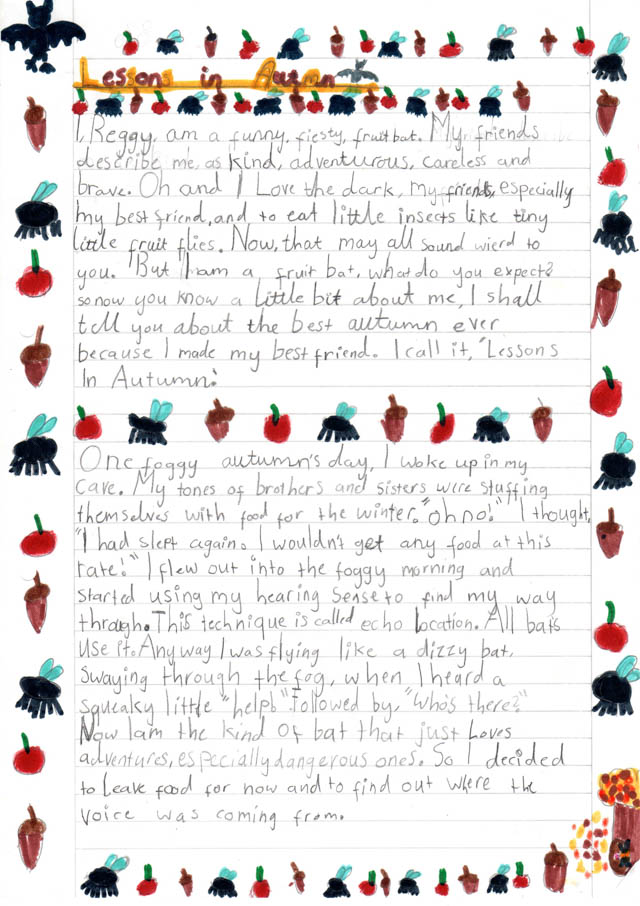 Lessons in Autumn
I, Reggy, am a funny, fiesty, fruit bat. My friends
describe me, as kind, adventurous, careless and
brave. Oh and I Love the dark, my friends, especially
my best friend, and to eat little insects like tiny
little fruit flies. Now, that may all sound wierd to
you. But I am a fruit bat, what do you expect?
so now you know a little bit about me, I shall
tell you about the best autumn ever
because I made my best friend. I call it, "Lessons
In Autumn."
One foggy autumn's day, I woke up in my
cave. My tones of brothers and sisters were stuffing
themselves with food for the winter. "Oh no!" I thought,
"I had slept again. I wouldn't get any food at this
rate!" I flew out into the foggy morning and
started using my hearing sense to find my way
through. This technique is called echo location. All bats
use it. Anyway I was flying like a dizzy bat,
swaying through the fog, when I heard a
squeaky little "help!" Followed by, "Who's there?"
Now I am the kind of bat that just Loves
adventures, especially dangerous ones. So I decided
to Leave food for now and to find out where the
voice was coming from.